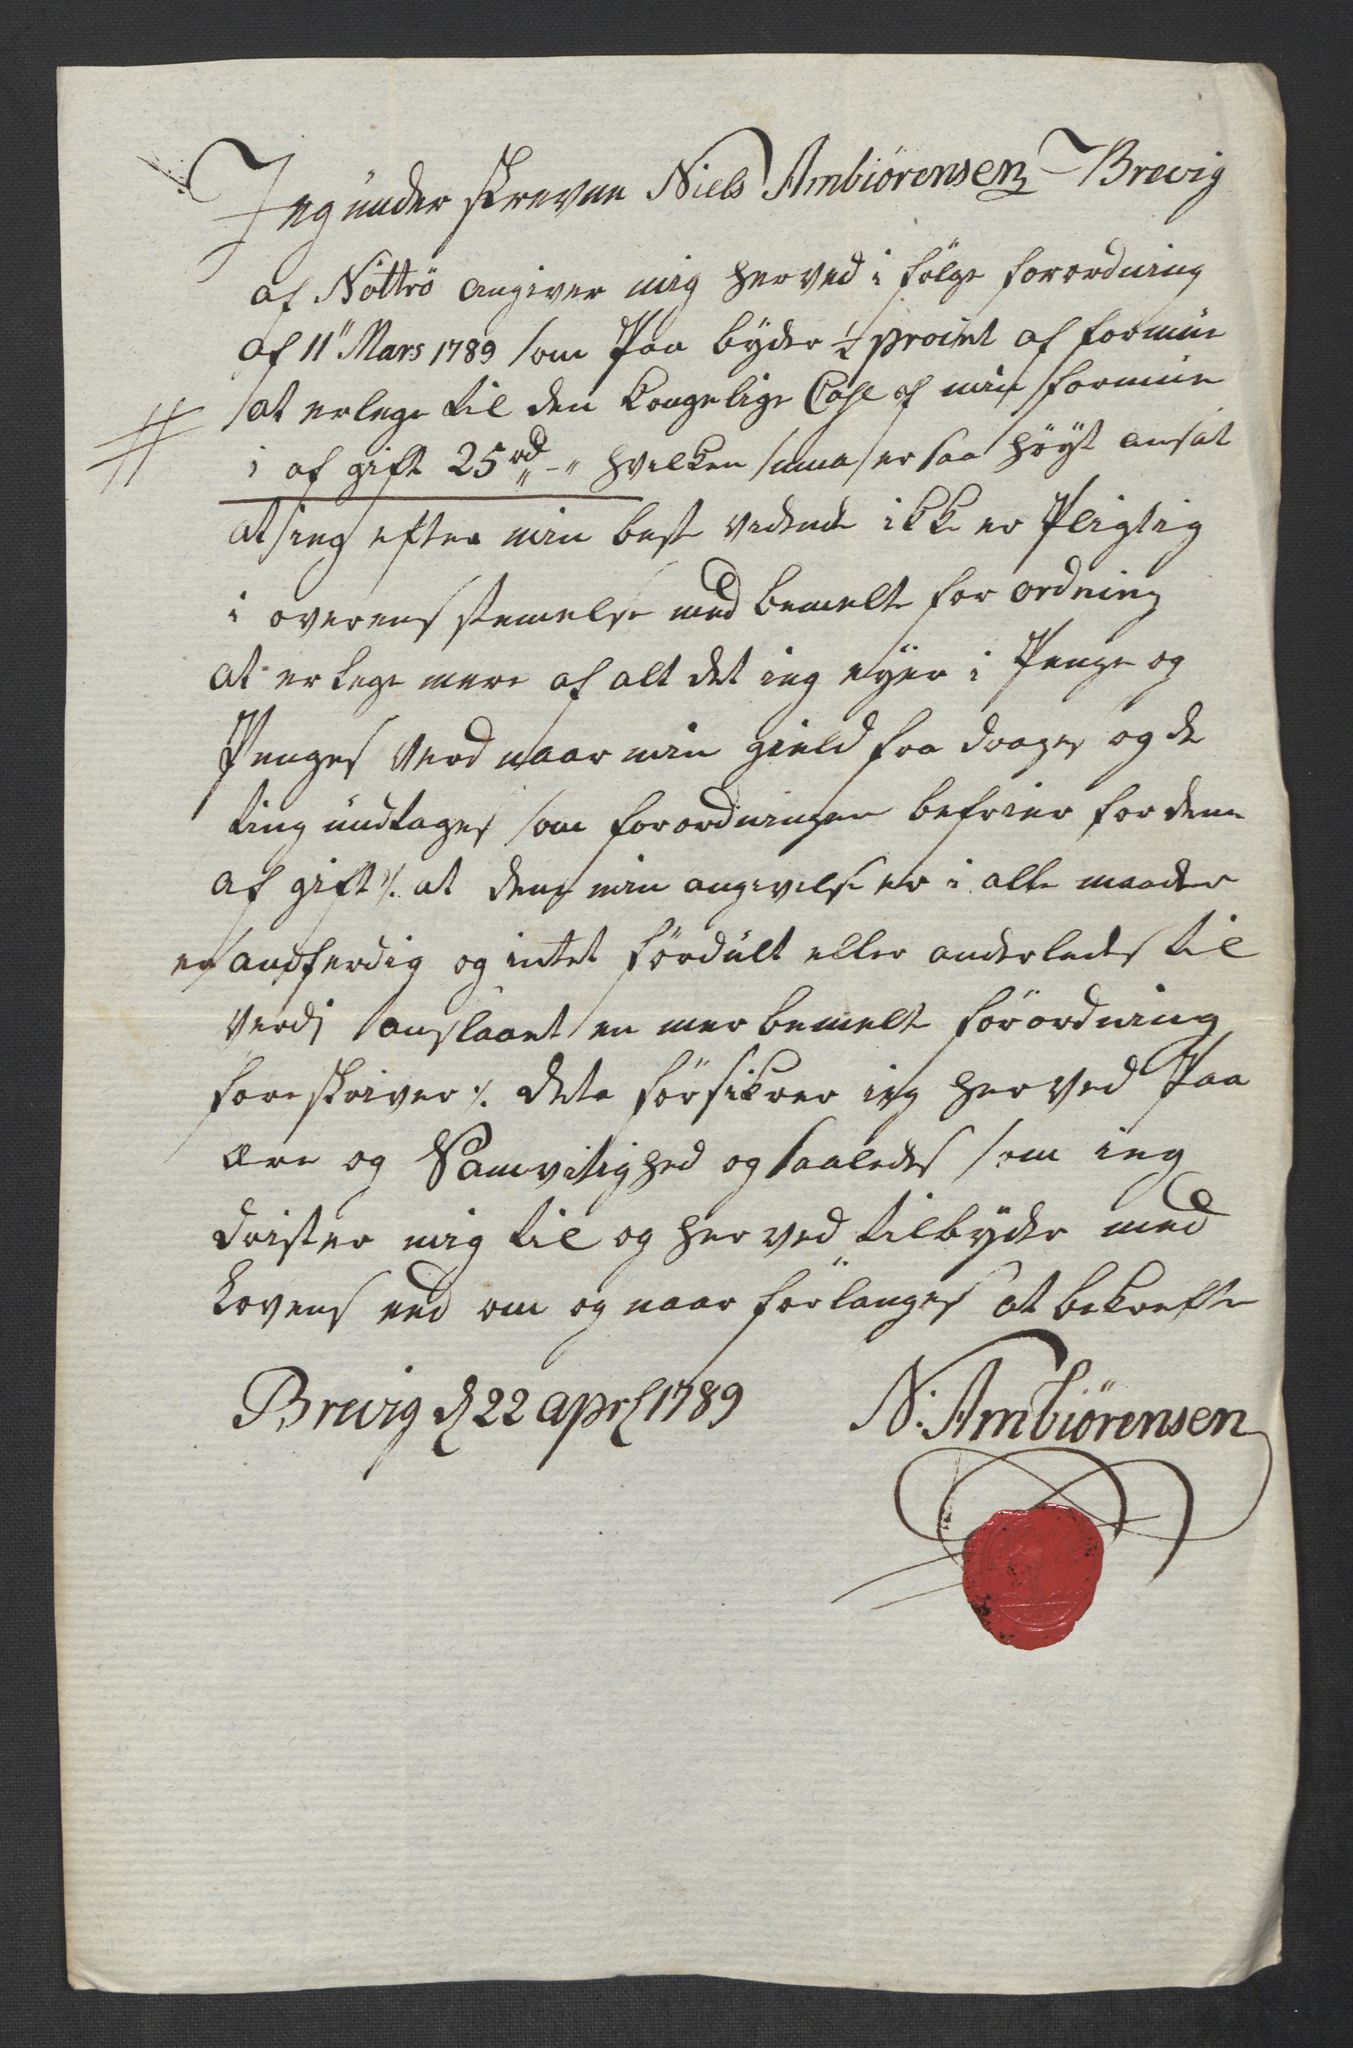 Jeg under skrevne Niels Ambiörensen Brevig
af Nöttrö angiver mig herved i fölge forordning
af 11" Mars 1789 som Paa byder ½ procint af formue
at erlege til den kongelige Casse af min formue
i af gift 25 rd " - " hvilken suma er saa höyt ansat
at ieg efter min beste vidende ikke er Pligtig
i overens stemelse med bemelte for ordning
at er lege mere af alt det ieg eyer i Penge og
Penges verd naar min gield fra drages og de
ting undtages som forordningen befrier for dene
af gift ⁒ at dene min angivelse er i alle maader
er sandferdig og intet fördult eller anderledes til
verdj anslaaet en mer bemelte förordning
foreskriver ⁒ dete försikrer ieg her ved Paa
ære og Samvitighed og saaledes som ieg
drister mig til og her ved tilbyder med
lovens eed om og naar förlanges at bekrefte
Brevig d 22 aprl 1789 N. Ambiörensen